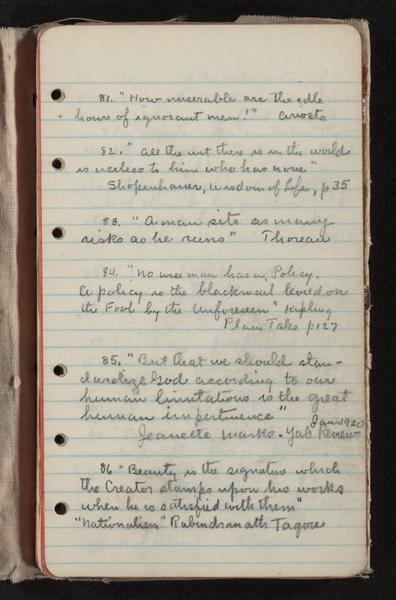 81. "How miserable are the idle
hours of ignorant men!" Ariosto
82. "All the wit there is in the world
is useless to him who has none"
Shopenhauer, Wisdom of Life, p 35
83. "A man sits as many
risks as he runs" Thoreau
84. "No wise man has a Policy.
A policy is the blackmail levied on
the Fool by the Unforeseen" Kipling
Plain Tales p 127
85. "But that we should stan-
dardize God according to our
human limitations is the great
human impertinence"
Jan 1920
Jeanette Marks - Yale Review
86 "Beauty is the signature which
the Creator stamps upon his works
when he is satisfied with them"
"Nationalism" Rabindranath Tagore